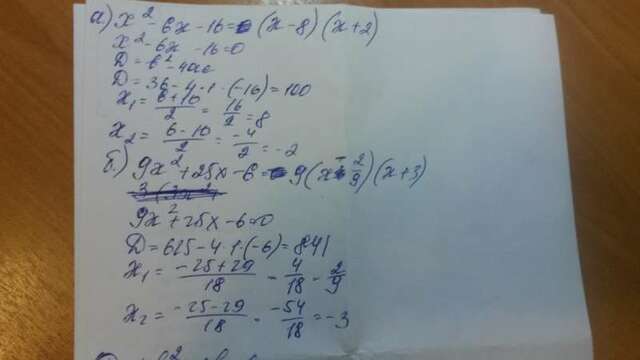 а) x² - 6x - 16 = (x - 8)(x + 2)
x² - 6x - 16 = 0
D = b² - 4ac
D = 36 - 4·1·(-16) = 100
x₁ = (6+10)/2 = 16/2 = 8
x₂ = (6-10)/2 = -4/2 = -2
б) 9x² + 25x - 6 = 9(x - 2/9)(x + 3)
9x² + 25x - 6 = 0
D = 625 - 4·1·(-6) = 841
x₁ = (-25+29)/18 = 4/18 = 2/9
x₂ = (-25-29)/18 = -54/18 = -3